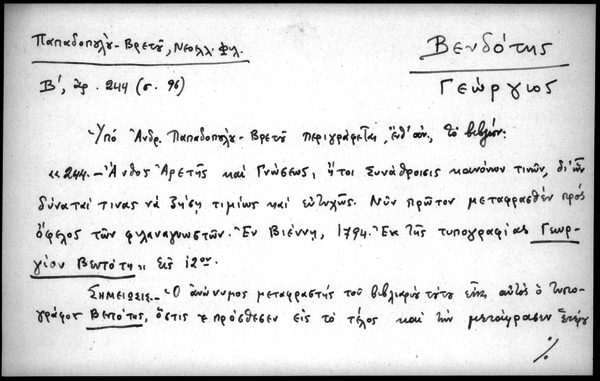 Παπαδοπούλου-Βρετοῦ, Νεοελλ. Φιλ.
Βενδότης
Β', ἀρ. 244 (σ. 96)
Γεώργιος
Ὑπό Ἀνδρ. Παπαδοπούλου-Βρετοῦ περιγράφεται, ἔνθ' ἀν., τὸ βιβλίον:
«244.- Ἄνθος Ἀρετῆς καὶ Γνώσεως, ἤτοι Συνάθροισις κανόνων τινῶν, δι' ὧν
δύναταί τινας νὰ ζήσῃ τιμίως καὶ εὐτυχῶς. Νῦν πρῶτον μεταφρασθὲν πρὸς
ὄφελος τῶν φιλαναγνωστῶν. Ἐν Βιέννῃ, 1794. Ἐκ τῆς τυπογραφίας Γεωρ-
γίου Βεντότη» εἰς 12ον.
Σημείωσις.- Ὁ ἀνώνυμος μεταφραστής τοῦ βιβλιαρίου τούτου εἶναι αὐτὸς ὁ τυπο-
γράφος Βεντότης, ὅστις προσθεσεν εἰς τὸ τέλος καὶ τὴν μετάφρασιν ἑτέρου
./.